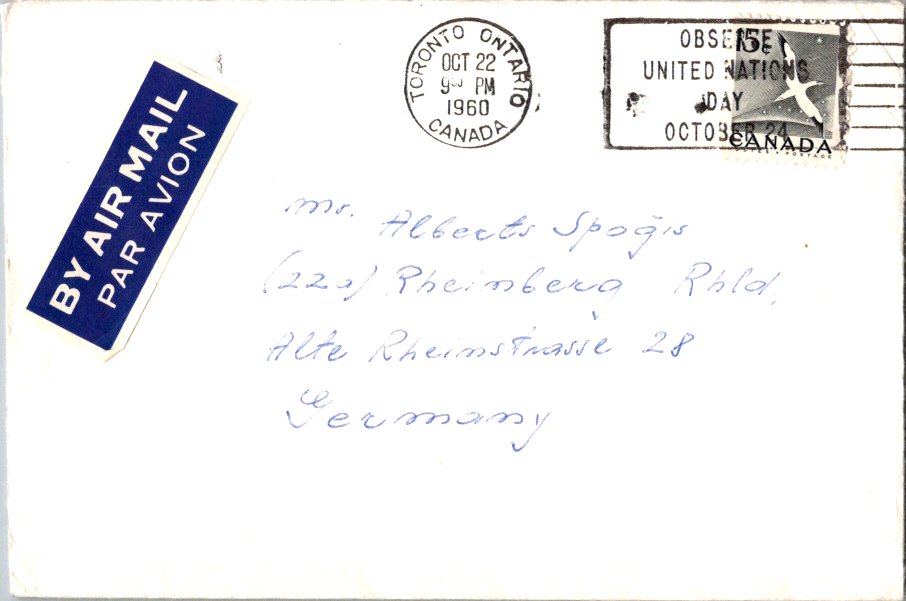 BY AIR MAIL
PAR AVION
TORONTO ONTARIO
OCT 22
PM
1960
CANADA
OBSERVE
UNITED NATIONS
DAY
OCTOBER 24
15¢
CANADA
Mr. Alberts Spoģis
(22a) Rheinberg Rhld,
Alte Rheinstrasse 28
Germany